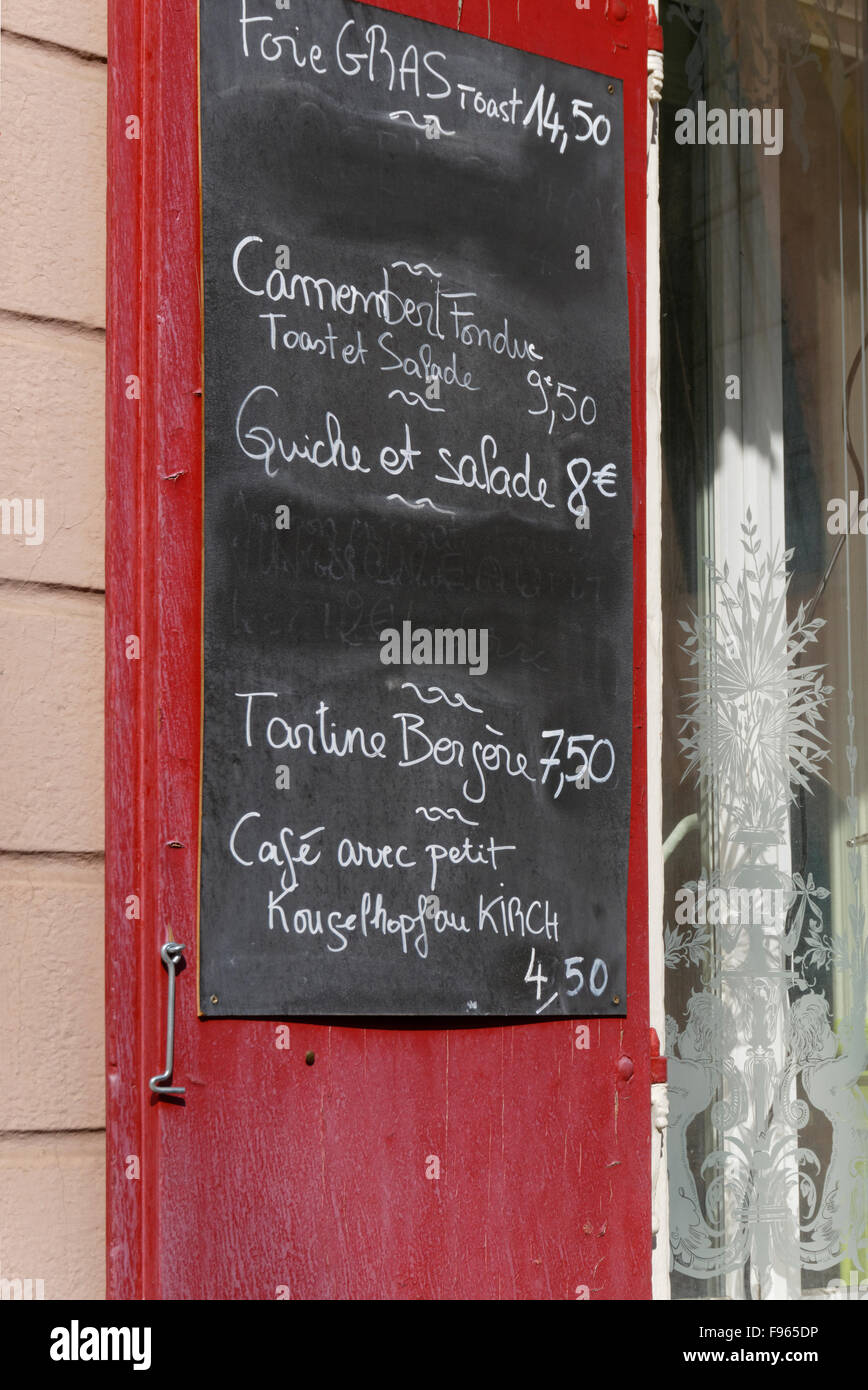 Foie GRAS Toast 14,50
Camembert Fondue
Toast et Salade 9€,50
Quiche et salade 8€
Tartine Bergère 7,50
Café avec petit
Kougelhopf au KIRCH
4,50
alamy
Image ID: F965DP
www.alamy.com